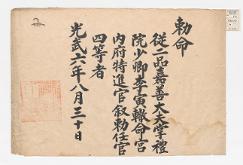 勅命
從二品嘉善大夫掌禮
院少卿李寅轍命宮
內府特進官叙勅任官
四等者
光武六年八月三十日